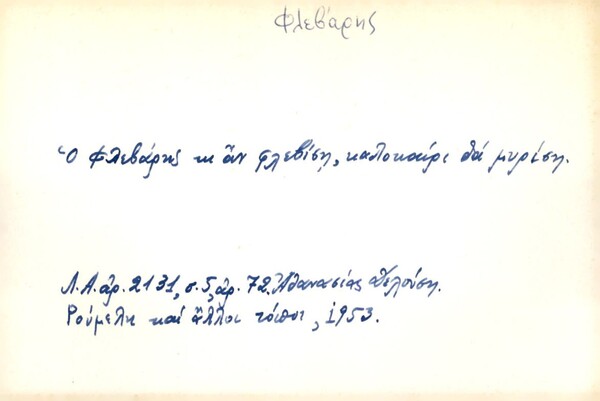 Φλεβάρης
Ὁ Φλεβάρης κι ἂν φλεβίσῃ, καλοκαίρι θά μυρίσῃ.
Λ.Α. ἀρ. 2131, σ. 5, ἀρ. 72. Ἀθανασίας
Ρούμελη καί ἄλλοι τόποι, 1953.